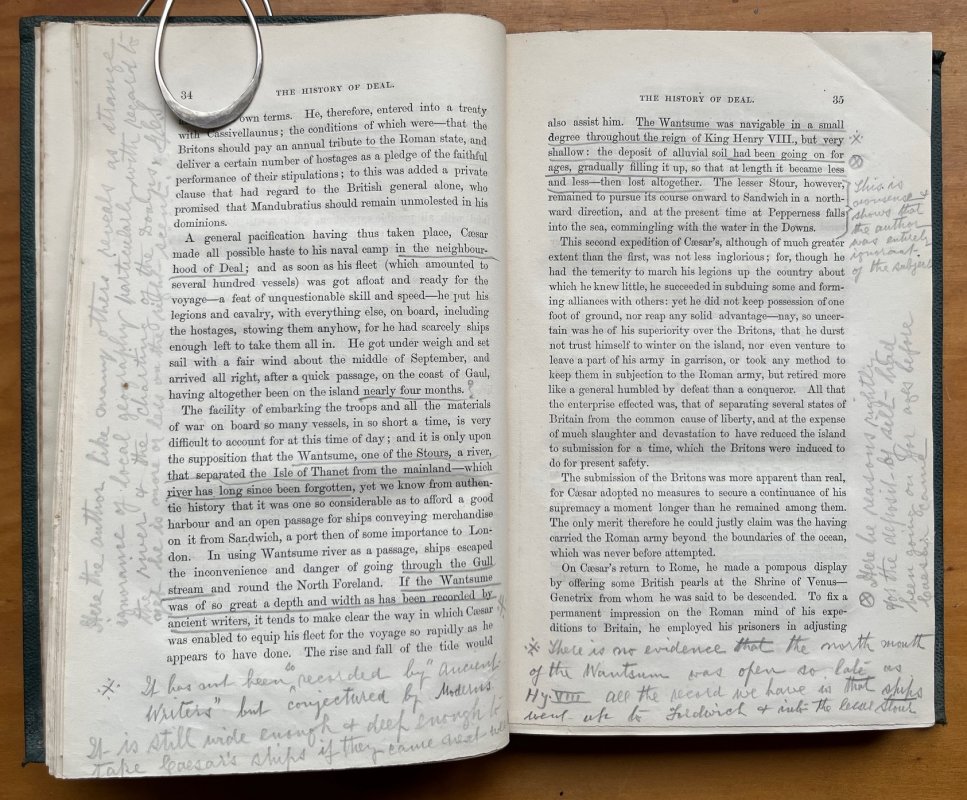 34
THE HISTORY OF DEAL.
own terms. He, therefore, entered into a treaty
with Cassivellaunus; the conditions of which were—that the
Britons should pay an annual tribute to the Roman state, and
deliver a certain number of hostages as a pledge of the faithful
performance of their stipulations; to this was added a private
clause that had regard to the British general alone, who
promised that Mandubratius should remain unmolested in his
dominions.
A general pacification having thus taken place, Cæsar
made all possible haste to his naval camp in the neighbour-
hood of Deal; and as soon as his fleet (which amounted to
several hundred vessels) was got afloat and ready for the
voyage—a feat of unquestionable skill and speed—he put his
legions and cavalry, with everything else, on board, including
the hostages, stowing them anyhow, for he had scarcely ships
enough left to take them all in. He got under weigh and set
sail with a fair wind about the middle of September, and
arrived all right, after a quick passage, on the coast of Gaul,
having altogether been on the island nearly four months. ?
The facility of embarking the troops and all the materials
of war on board so many vessels, in so short a time, is very
difficult to account for at this time of day; and it is only upon
the supposition that the Wantsume, one of the Stours, a river,
that separated the Isle of Thanet from the mainland—which
river has long since been forgotten, yet we know from authen-
tic history that it was one so considerable as to afford a good
harbour and an open passage for ships conveying merchandise
on it from Sandwich, a port then of some importance to Lon-
don. In using Wantsume river as a passage, ships escaped
the inconvenience and danger of going through the Gull
stream and round the North Foreland. If the Wantsume
was of so great a depth and width as has been recorded by
ancient writers, it tends to make clear the way in which Cæsar
was enabled to equip his fleet for the voyage so rapidly as he
appears to have done. The rise and fall of the tide would
Here the author like many others reveals as strange
ignorance of local geography particularly with regard to
the river & the charting of the Downs & Isle
It has not been "recorded by "Ancient
Writers" but "conjectured by Moderns
It is still wide enough & deep enough to
take Caesar's ships if they came next
THE HISTORY OF DEAL.
35
also assist him. The Wantsume was navigable in a small
degree throughout the reign of King Henry VIII., but very
shallow: the deposit of alluvial soil had been going on for
ages, gradually filling it up, so that at length it became less
and less—then lost altogether. The lesser Stour, however,
remained to pursue its course onward to Sandwich in a north-
ward direction, and at the present time at Pepperness falls
into the sea, commingling with the water in the Downs.
This second expedition of Cæsar's, although of much greater
extent than the first, was not less inglorious; for, though he
had the temerity to march his legions up the country about
which he knew little, he succeeded in subduing some and form-
ing alliances with others: yet he did not keep possession of one
foot of ground, nor reap any solid advantage—nay, so uncer-
tain was he of his superiority over the Britons, that he durst
not trust himself to winter on the island, nor even venture to
leave a part of his army in garrison, or took any method to
keep them in subjection to the Roman army, but retired more
like a general humbled by defeat than a conqueror. All that
the enterprise effected was, that of separating several states of
Britain from the common cause of liberty, and at the expense
of much slaughter and devastation to have reduced the island
to submission for a time, which the Britons were induced to
do for present safety.
The submission of the Britons was more apparent than real,
for Cæsar adopted no measures to secure a continuance of his
supremacy a moment longer than he remained among them.
The only merit therefore he could justly claim was the having
carried the Roman army beyond the boundaries of the ocean,
which was never before attempted.
On Cæsar's return to Rome, he made a pompous display
by offering some British pearls at the Shrine of Venus—
Genetrix from whom he was said to be descended. To fix a
permanent impression on the Roman mind of his expe-
ditions to Britain, he employed his prisoners in adjusting
This is
nonsense &
shows that
the author
was entirely
ignorant
of the subject
Here he reasons rightly
for the deposit of silt had
been going on for ages before
Caesar came
There is no evidence that the north mouth
of the Wantsum was open so late as
Hy. VIII all the record we have is that ships
went up to Fordwich & into the lesser Stour